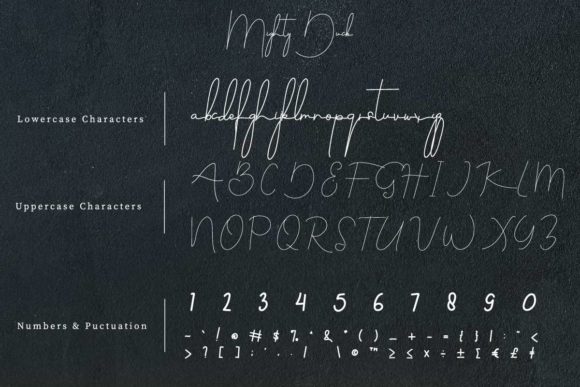 Mighty Duck
Lowercase Characters
abcdefghijklmnopqrstuvwxyz
Uppercase Characters
ABCDEFGHIJKLM
NOPQRSTUVWXYZ
Numbers & Puctuation
1 2 3 4 5 6 7 8 9 0
~ ` ! @ # $ % ^ & * ( ) _ + - = { } | : " <
> ? [ ] ; ' . / \ © ™ ≥ ≤ × ÷ ± ¥ € £